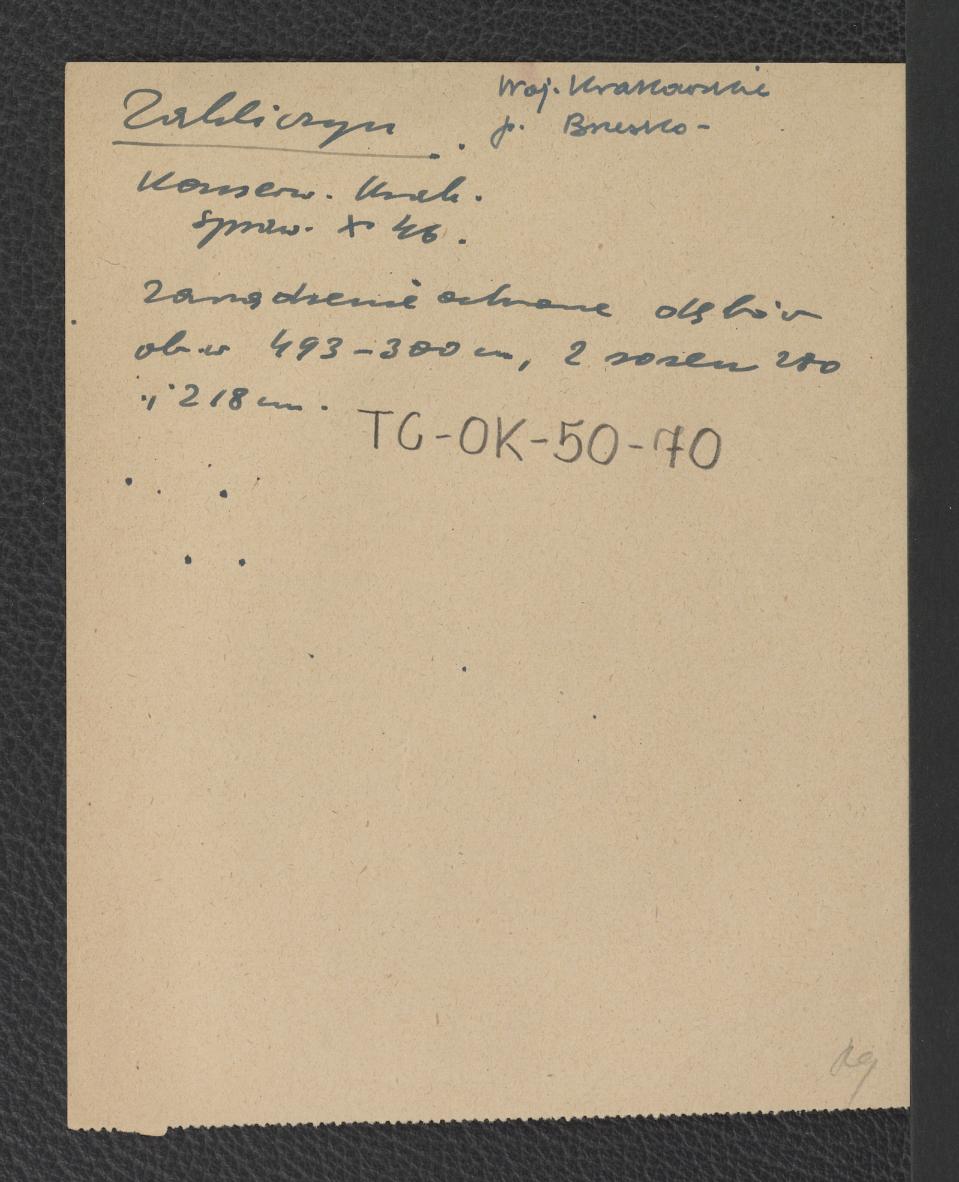 Zakliczyn.
Woj. Krakowskie
p. Brzesko-
Konserw. Krak.
Spraw. X 46.
Zarządzenie ochrone dębów
obw 493-300 cm, 2 sosen 280
i 218 cm.
TG-OK-50-70